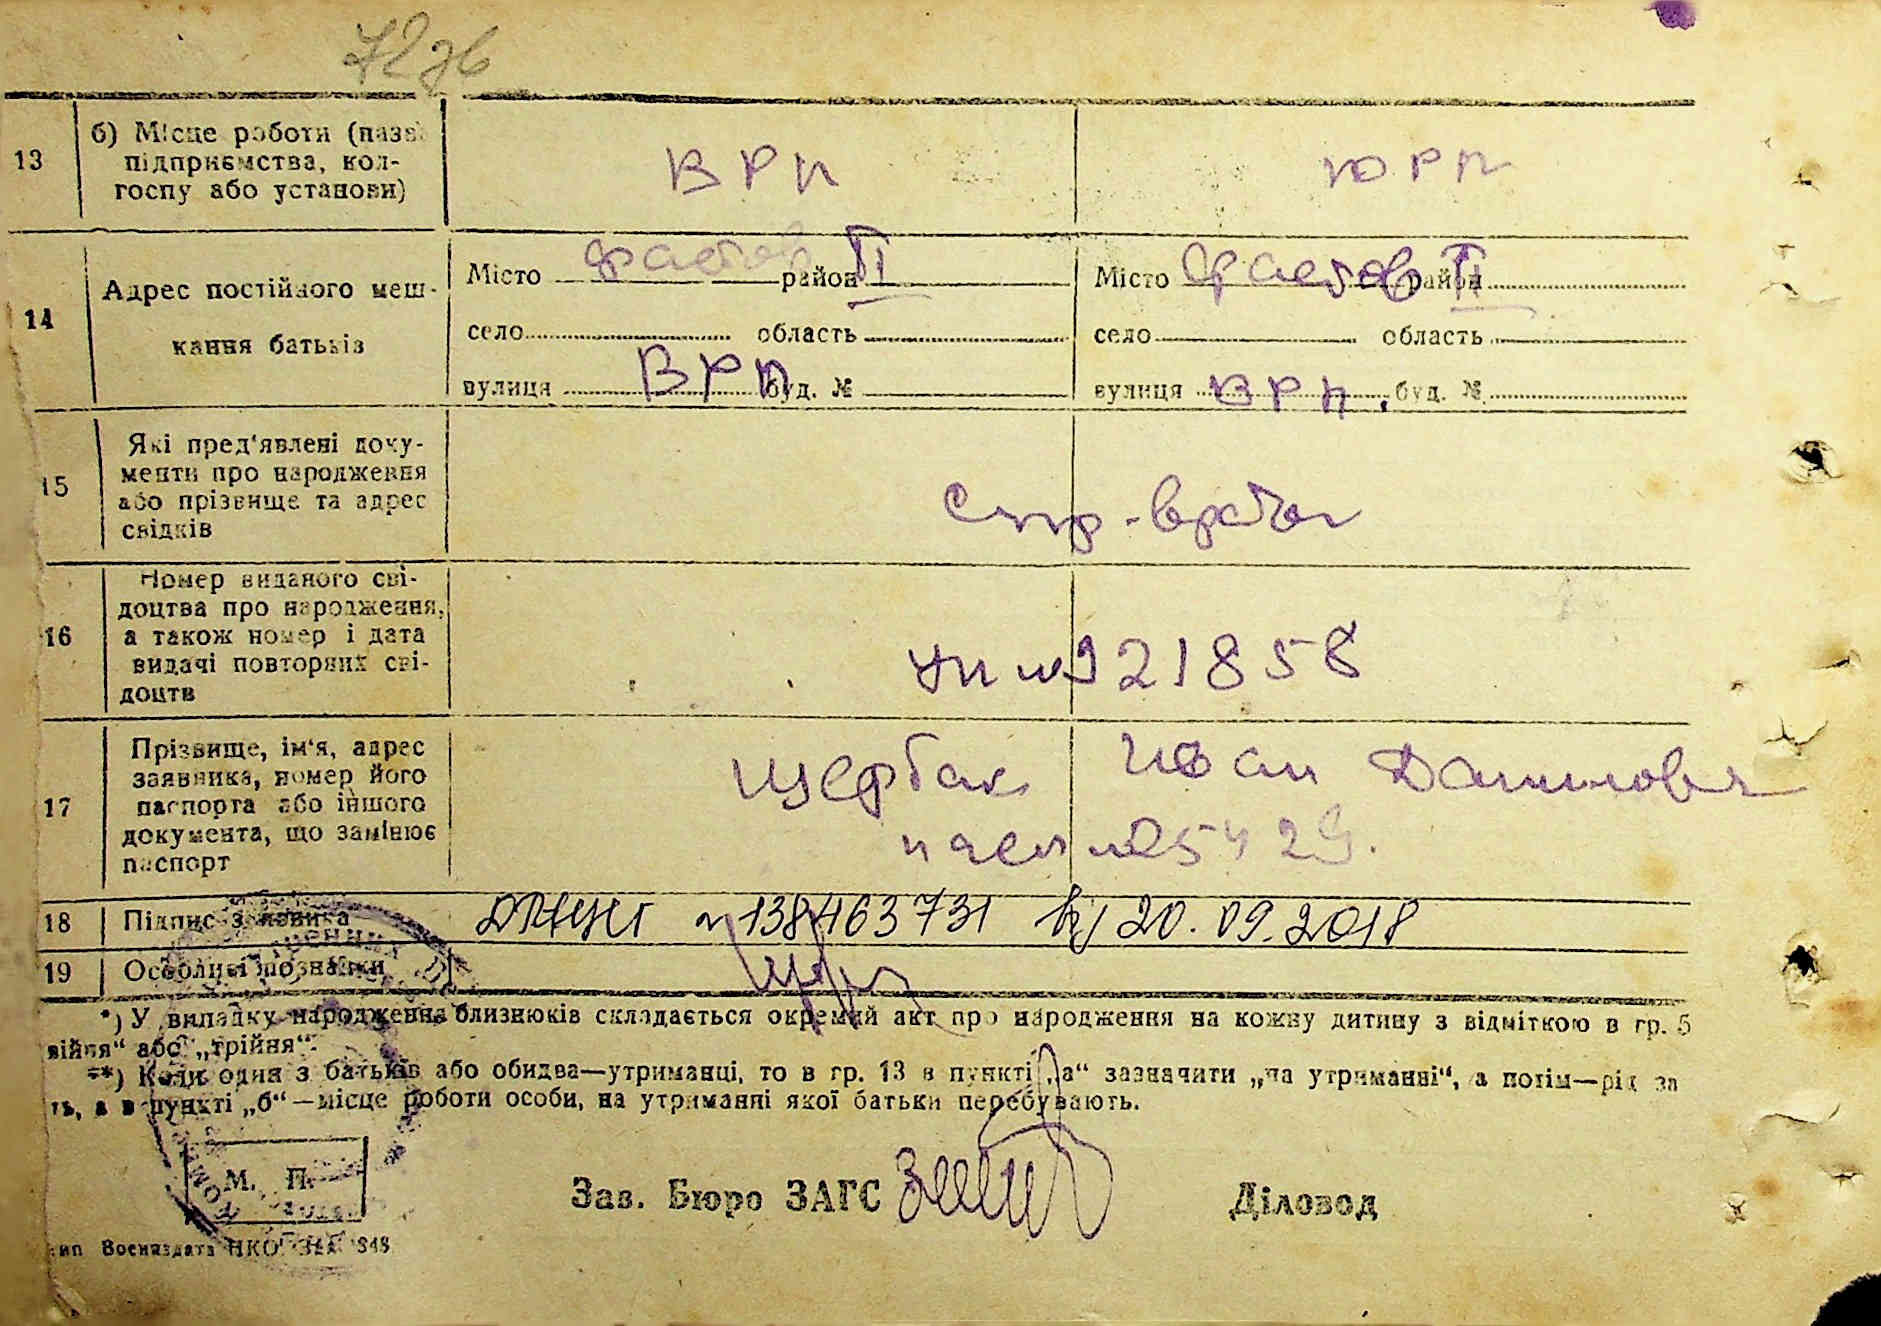 13 б) Місце роботи (назва
підприємства, кол-
госпу або установи)
ВРП ЮРП
14 Адрес постійного меш-
кання батьків
Місто Фастов район II Місто Фастов район II
село область село область
вулиця ВРП буд. № вулиця ВРП. буд. №
15 Які пред'явлені доку-
менти про народження
або прізвище та адрес
свідків
Спр. врача
16 Номер виданого сві-
доцтва про народження,
а також номер і дата
видачі повторних сві-
доцтв
УП № 921858
17 Прізвище, ім'я, адрес
заявника, номер його
паспорта або іншого
документа, що замінює
паспорт
Щербак Иван Данилович
18 Підпис заявника 138463731 20.09.2018
19 Особливі познавки
*) У випадку народження близнюків складається окремий акт про народження на кожну дитину з відміткою в гр. 5
війня" або „трійня".
**) Коли один з батьків або обидва—утриманці, то в гр. 13 в пункті „а" зазначити „на утриманні", а потім—рід за
ть, а в пункті „б"—місце роботи особи, на утриманні якої батьки перебувають.
М. П.
Зав. Бюро ЗАГС Діловод
тип Воениздата НКО